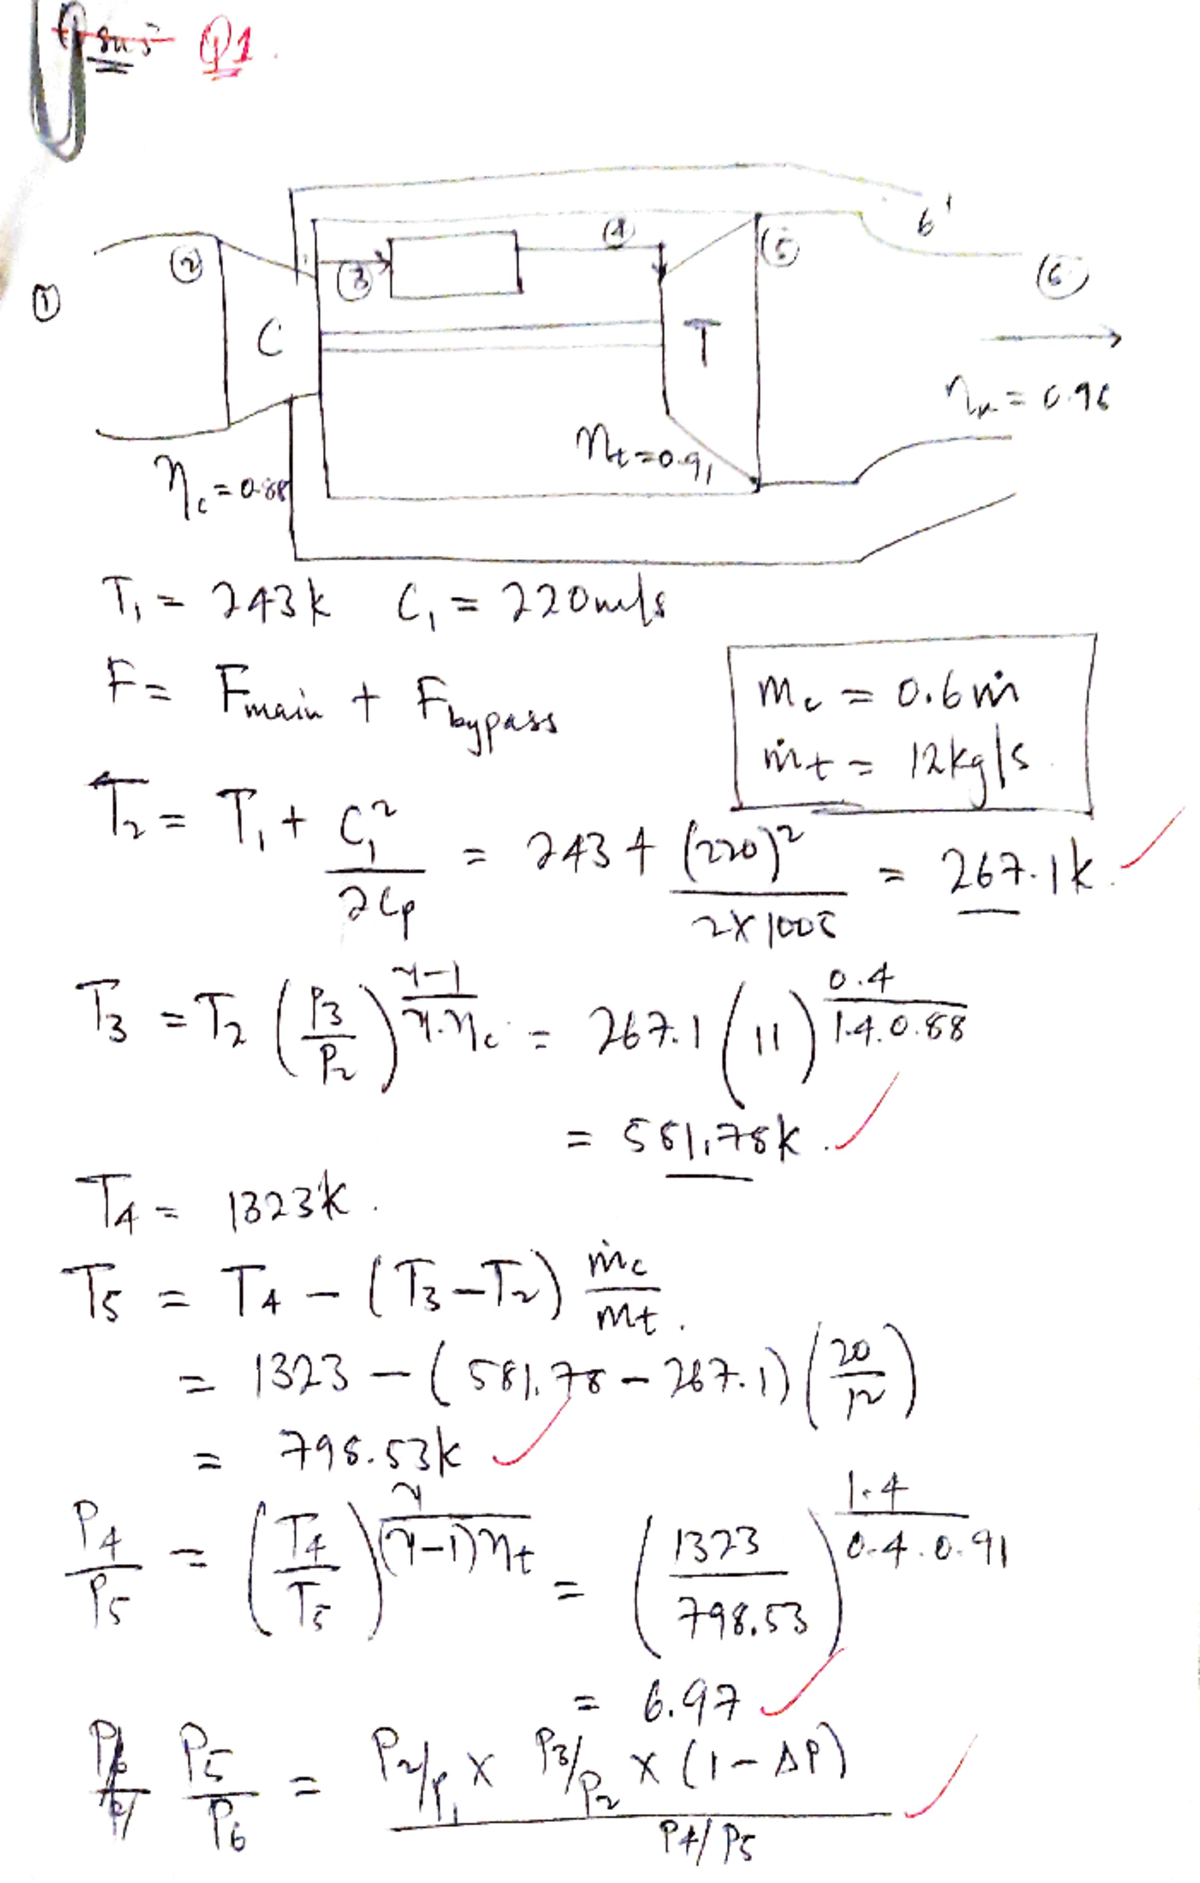 Q1.
①
②
③
④
⑤
6'
⑥
C
T
η_c = 0.88
η_t = 0.91
η_n = 0.96
T₁ = 243K C₁ = 220m/s
F = F_main + F_bypass
m_c = 0.6ṁ
ṁ_t = 12kg/s
T₂ = T₁ + C₁²/2Cp = 243 + (220)²/2×1005 = 267.1K.
T₃ = T₂ (P₃/P₂)^(γ-1/γ.η_c) = 267.1 (11)^(0.4/1.4.0.88)
= 581.78K.
T₄ = 1323K.
T₅ = T₄ - (T₃ - T₂) ṁ_c/m_t.
= 1323 - (581.78 - 267.1) (20/12)
= 798.53K
P₄/P₅ = (T₄/T₅)^(γ/(γ-1)η_t) = (1323/798.53)^(1.4/0.4.0.91)
= 6.97
P₅/P₆ = P₂/P₁ × P₃/P₂ × (1 - ΔP) / P₄/P₅